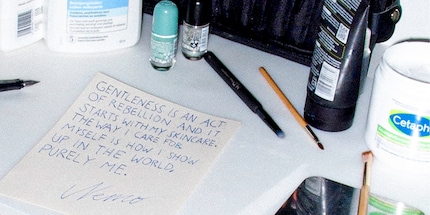 GENTLENESS IS AN ACT
OF REBELLION AND IT
STARTS WITH MY SKINCARE.
THE WAY I CARE FOR
MYSELF IS HOW I SHOW
UP IN THE WORLD,
PURELY ME.
Nemo
Cetaphil